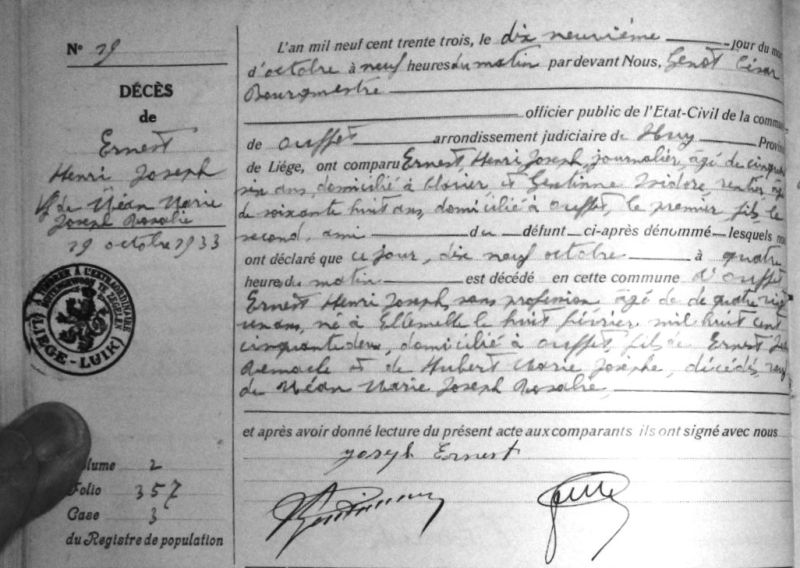 N° 19
DÉCÈS
de
Ernest
Henri Joseph
Vf de Méan Marie
Joseph Rosalie
19 octobre 1933
A TIMBRER A L'EXTRAORDINAIRE
LIEGE - LUIK
Volume 2
Folio 357
Case 3
du Registre de population
L'an mil neuf cent trente trois, le dix neuvième jour du mois
d'octobre à neuf heures du matin par devant Nous, Genot César
Bourgmestre
officier public de l'Etat-Civil de la commu
de Ouffet arrondissement judiciaire de Huy Provin
de Liége, ont comparu Ernest, Henri Joseph, journalier, âgé de cinquante
six ans, domicilié à Clavier et Gentinne Isidore, rentier, âgé
de soixante huit ans, domicilié à Ouffet, le premier fils, le
second, ami du défunt ci-après dénommé lesquels n
ont déclaré que ce jour, dix neuf octobre à quatre
heures du matin est décédé en cette commune d'Ouffet
Ernest Henri Joseph, sans profession âgé de quatre vingt
un ans, né à Ellemelle le huit février mil huit cent
cinquante deux, domicilié à Ouffet, fils de Ernest
Remacle et de Hubert Marie Josèphe, décédés, veuf
de Méan Marie Joseph Rosalie,
et après avoir donné lecture du présent acte aux comparants ils ont signé avec nous
Joseph Ernest